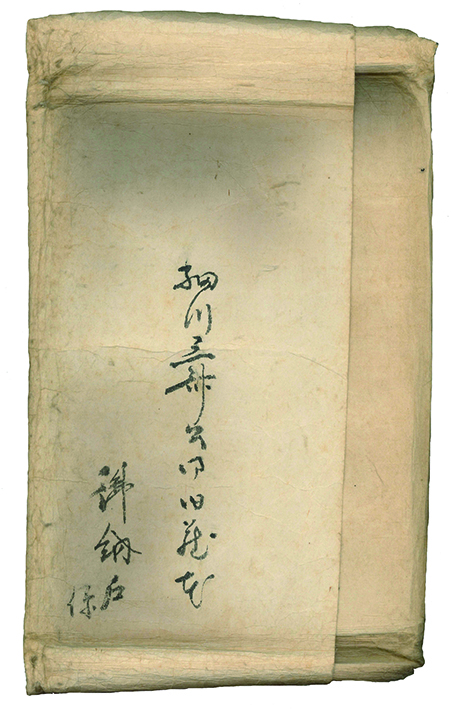 細川三斎公御旧蔵
納戸
係